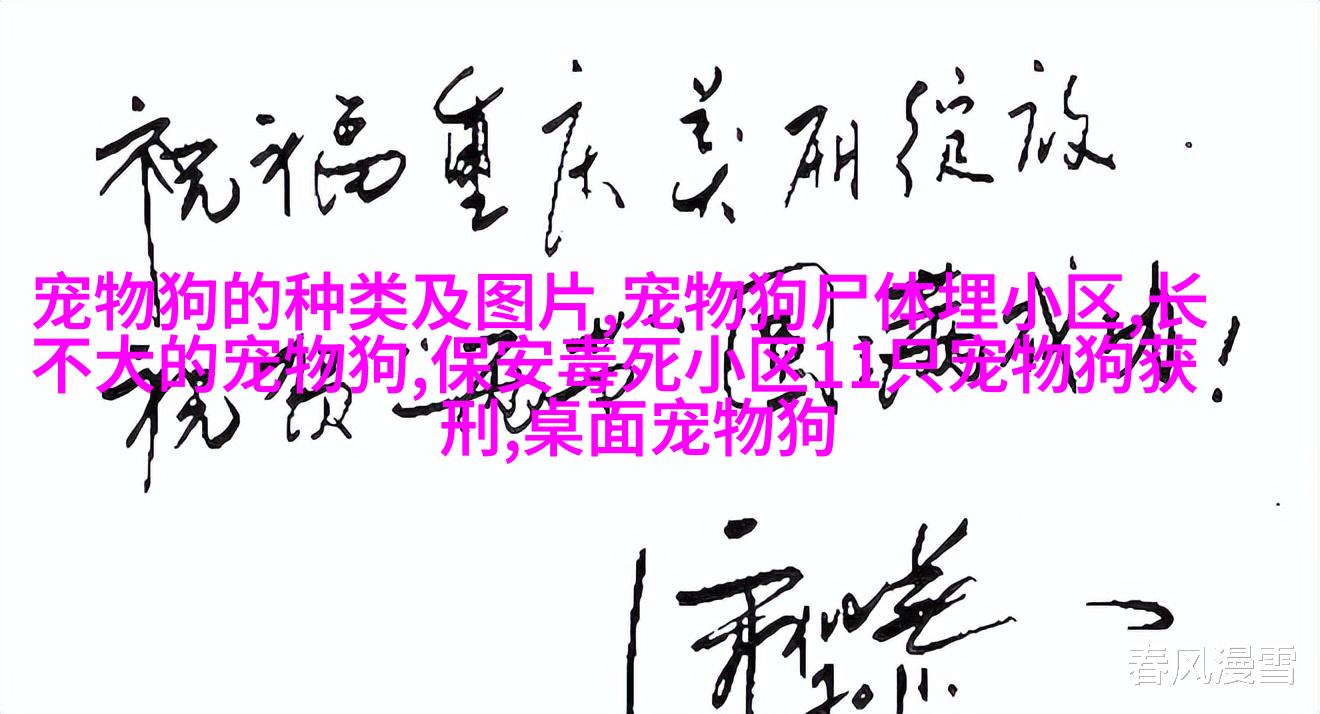 祝福重庆美丽绽放.
宠物狗的种类及图片,宠物狗尸体埋小区,长
不大的宠物狗,保安毒死小区11只宠物狗获
刑,桌面宠物狗
祝贺
2011.
春风漫雪